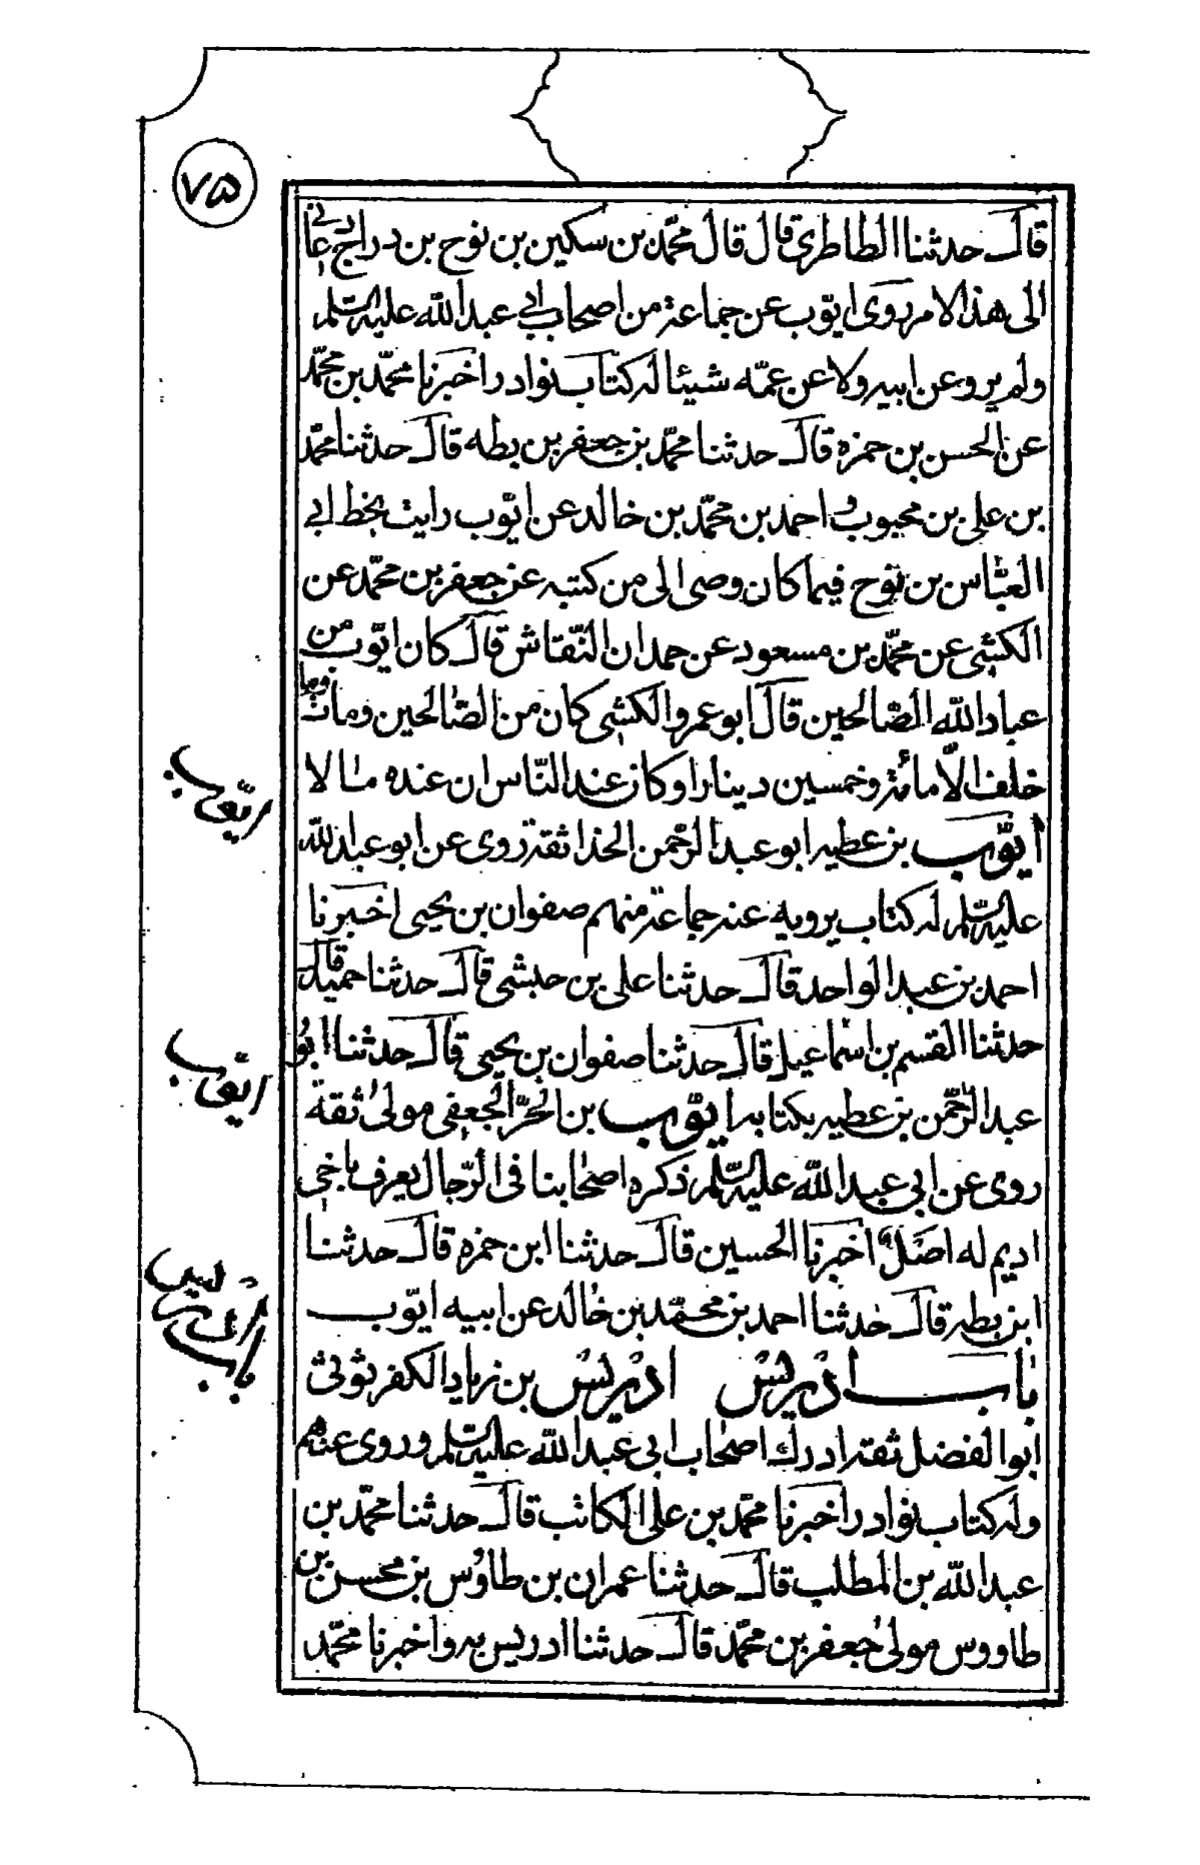 ۷۵
قال حدثنا الطاطری قال قال محمّد بن سکین بن نوح بن دراج دعانی
الی هذا الامر روی ایّوب عن جماعة من اصحاب ابی عبد الله علیه السّلم
ولم یرو عن ابیه ولا عن عمّه شیئا له کتاب نوادر اخبرنا محمّد بن محمّد
عن الحسن بن حمزه قال حدثنا محمّد بن جعفر بن بطه قال حدثنا محمّد
بن علی بن محبوب و احمد بن محمّد بن خالد عن ایّوب رایت بخط ابی
العبّاس بن نوح فیما کان وصی الی من کتبه عن جعفر بن محمّد عن
الکشی عن محمّد بن مسعود عن حمدان النّقاش قال کان ایّوب من
عباد الله الصّالحین قال ابو عمرو الکشی کان من الصّالحین ومات وما
خلف الّا مائة وخمسین دینارا وکان عند النّاس ان عنده مالا
ایّوب بن عطیه ابو عبد الرّحمن الحذا ثقة روی عن ابو عبد الله
علیه السّلم له کتاب یرویه عنه جماعة منهم صفوان بن یحیی اخبرنا
احمد بن عبد الواحد قال حدثنا علی بن حبشی قال حدثنا حمید قال
حدثنا القسم بن اسماعیل قال حدثنا صفوان بن یحیی قال حدثنا ابو
عبد الرّحمن بن عطیه بکتابه ایّوب بن الحرّ الجعفی مولی ثقة
روی عن ابی عبد الله علیه السّلم ذکره اصحابنا فی الرّجال یعرف باخی
ادیم له اصل اخبرنا الحسین قال حدثنا ابن حمزه قال حدثنا
ابن بطه قال حدثنا احمد بن محمّد بن خالد عن ابیه ایّوب
باب ادریس ادریس بن زیاد الکفرثوثی
ابو الفضل ثقة ادرك اصحاب ابی عبد الله علیه السّلم وروی عنهم
وله کتاب نوادر اخبرنا محمّد بن علی الکاتب قال حدثنا محمّد بن
عبد الله بن المطلب قال حدثنا عمران بن طاوس بن محسن بن
طاووس مولی جعفر بن محمّد قال حدثنا ادریس به واخبرنا محمّد
ایّوب
ایّوب
باب ادریس